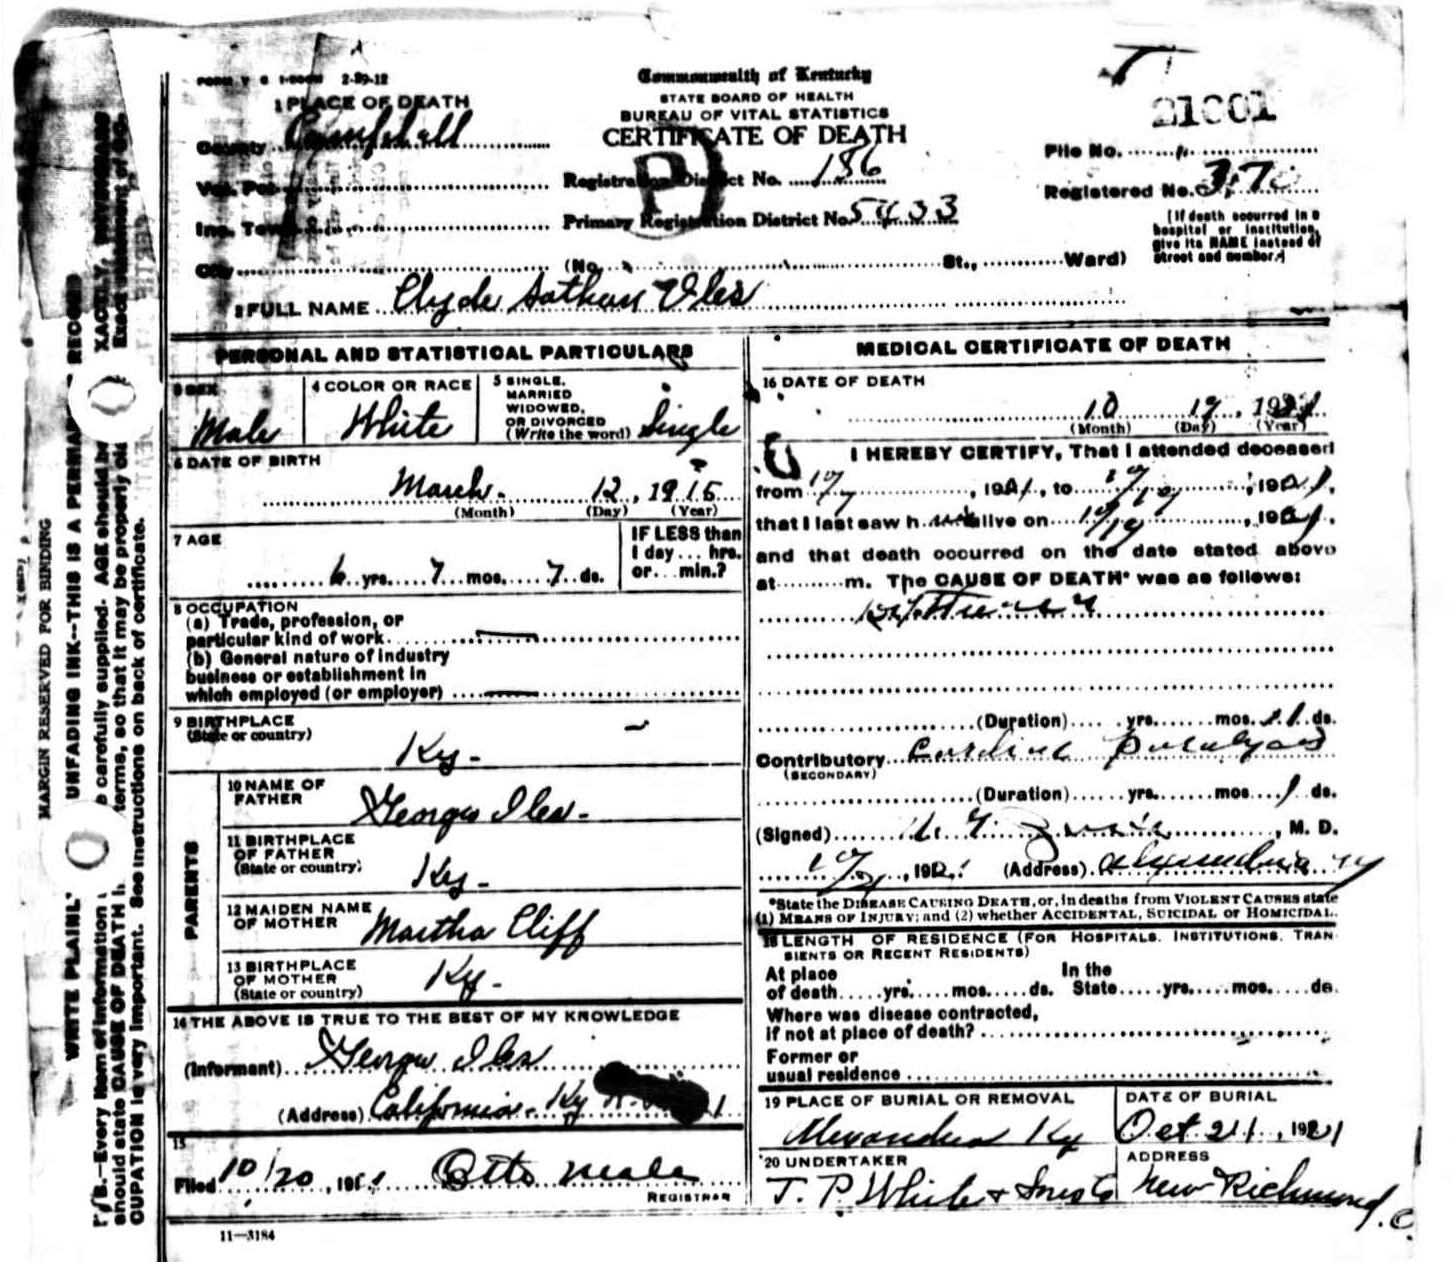 2-29-12
Commonwealth of Kentucky
STATE BOARD OF HEALTH
BUREAU OF VITAL STATISTICS
CERTIFICATE OF DEATH
1 PLACE OF DEATH
County Campbell
Registration District No. 186
Primary Registration District No. 5433
21001
File No.
Registered No.
(If death occurred in a hospital or institution, give its NAME instead of street and number.)
Inc. Town
City (No. St., Ward)
2 FULL NAME Clyde Iles
PERSONAL AND STATISTICAL PARTICULARS
3 SEX Male
4 COLOR OR RACE White
5 SINGLE, MARRIED WIDOWED, OR DIVORCED (Write the word) Single
6 DATE OF BIRTH
March 12, 1915
(Month) (Day) (Year)
7 AGE
6 yrs. 7 mos. 7 ds.
IF LESS than 1 day ... hrs. or ... min.?
8 OCCUPATION
(a) Trade, profession, or
particular kind of work
(b) General nature of industry
business or establishment in
which employed (or employer)
9 BIRTHPLACE
(State or country)
Ky-
PARENTS
10 NAME OF FATHER George Iles-
11 BIRTHPLACE OF FATHER (State or country) Ky-
12 MAIDEN NAME OF MOTHER Martha Cliff
13 BIRTHPLACE OF MOTHER (State or country) Ky-
14 THE ABOVE IS TRUE TO THE BEST OF MY KNOWLEDGE
(Informant) George Iles
(Address) California - Ky
15
Filed 10/20, 19 Otto Neale
REGISTRAR
11-3184
MEDICAL CERTIFICATE OF DEATH
16 DATE OF DEATH
10 19, 1921
(Month) (Day) (Year)
I HEREBY CERTIFY, That I attended deceased
from 10/7, 1921, to 10/19, 1921,
that I last saw h alive on 10/19, 1921,
and that death occurred on the date stated above
at m. The CAUSE OF DEATH* was as follows:
Diphtheria
(Duration) yrs. mos. 11 ds.
Contributory Cardiac Paralysis
(SECONDARY)
(Duration) yrs. mos. 1 ds.
(Signed) , M. D.
, 192 (Address) Alexandria Ky
*State the DISEASE CAUSING DEATH, or, in deaths from VIOLENT CAUSES state
(1) MEANS OF INJURY; and (2) whether ACCIDENTAL, SUICIDAL OR HOMICIDAL.
18 LENGTH OF RESIDENCE (FOR HOSPITALS, INSTITUTIONS, TRAN-
SIENTS OR RECENT RESIDENTS)
At place of death yrs. mos. ds. In the State yrs. mos. ds.
Where was disease contracted,
if not at place of death?
Former or
usual residence
19 PLACE OF BURIAL OR REMOVAL
Alexandria Ky
DATE OF BURIAL
Oct 21, 1921
20 UNDERTAKER
J. P. White & Sons Co
ADDRESS
New Richmond, O.
MARGIN RESERVED FOR BINDING
WRITE PLAINL UNFADING INK--THIS IS A PERMA RECORD
B.--Every item of information carefully supplied. AGE should be XACTLY.
should state CAUSE OF DEATH terms, so that it may be properly Exact statement of OC-
CUPATION is very important. See instructions on back of certificate.